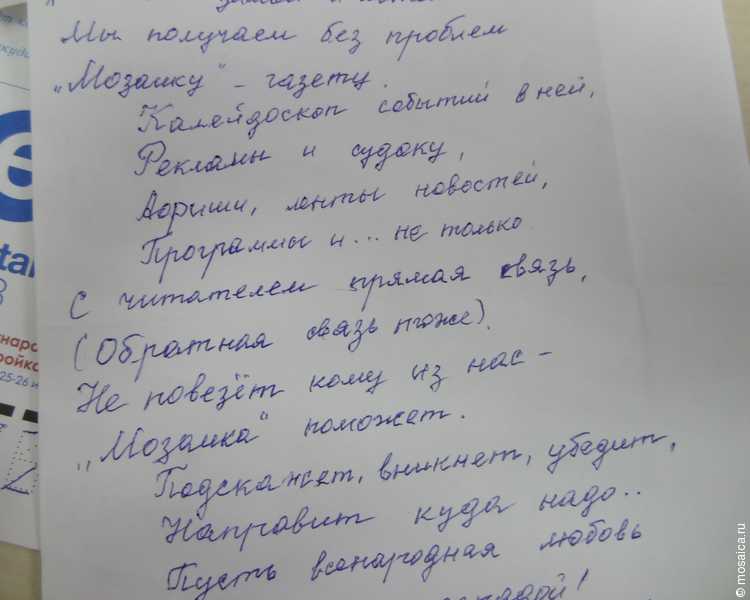 Мы получаем без проблем
„Мозаику" – газету.
Калейдоскоп событий в ней,
Рекламы и судоку,
Афиши, ленты новостей,
Программы и... не только
С читателем прямая связь,
(Обратная связь тоже).
Не повезёт кому из нас –
„Мозаика" поможет.
Подскажет, вникнет, убедит,
Направит куда надо..
Пусть всенародная любовь
25-26 и
© mosaica.ru